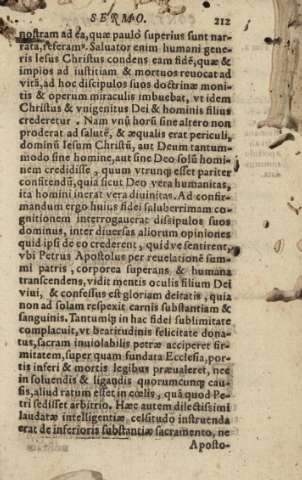 SERMO. 212
nostram ad ea, quæ paulò superius sunt nar-
rata, referam⁹. Saluator enim humani gene-
ris Iesus Christus condens eam fidé, quæ &
impios ad iustitiam & mortuos reuocat ad
vitā, ad hoc discipulos suos doctrinæ moni-
tis & operum miraculis imbuebat, vt idem
Christus & vnigenitus Dei & hominis filius
crederetur. Nam vnū horū sine altero non
proderat ad salutē, & æqualis erat periculi,
dominū Iesum Christū, aut Deum tantum-
modo sine homine, aut sine Deo solū homi-
nem credidisse, quum vtrunq; esset pariter
confitendū, quia sicut Deo vera humanitas,
ita homini inerat vera diuinitas. Ad confir-
mandum ergo huius fidei saluberrimam co-
gnitionem interrogauerat discipulos suos
dominus, inter diuersas aliorum opiniones
quid ipsi de eo crederent, quid ve sentirent,
vbi Petrus Apostolus per reuelationē sum-
mi patris, corporea superans & humana
transcendens, vidit mentis oculis filium Dei
viui, & confessus est gloriam deitatis, quia
non ad solam respexit carnis substantiam &
sanguinis. Tantumq; in hac fidei sublimitate
complacuit, vt beatitudinis felicitate dona-
tus, sacram inuiolabilis petræ acciperet fir-
mitatem, super quam fundata Ecclesia, por-
tis inferi & mortis legibus præualeret, nec
in soluendis & ligandis quorumcunq; cau-
sis, aliud ratum esset in cœlis, quā quod Pe-
tri sedisset arbitrio. Hæc autem dilectissimi
laudatæ intelligentiæ celsitudo instruenda
erat de inferioris substantiæ sacramento, ne
Aposto-